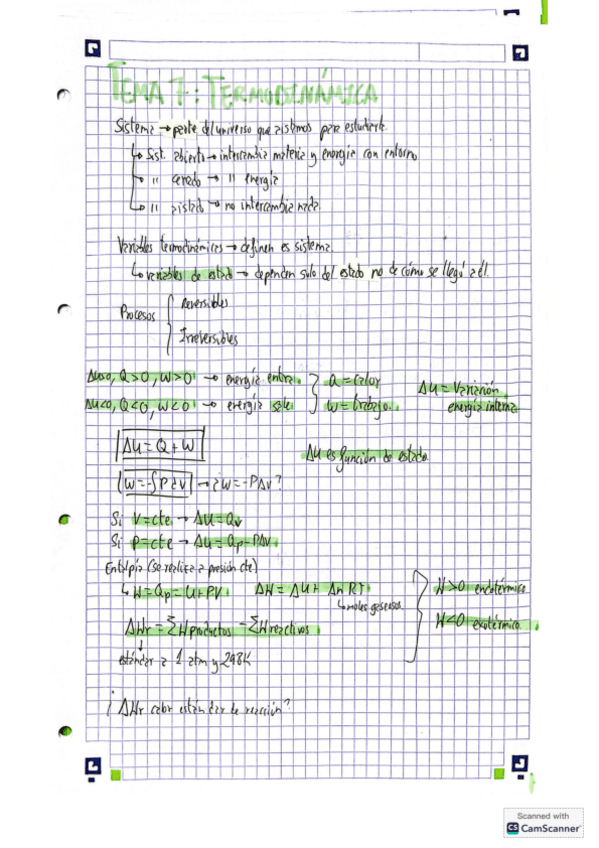 TEMA 7: TERMODINÁMICA
Sistema → parte del universo que aislamos para estudiarle.
↳ Sist. abierto → intercambia materia y energía con entorno
↳ " cerrado → " energía
↳ " aislado → no intercambia nada
Variables termodinámicas → definen es sistema.
↳ variables de estado → dependen solo del estado no de cómo se llegó a él.
Procesos { Reversibles
Irreversibles
Δu>0, Q>0, W>0 → energía entra. } Q = calor
Δu<0, Q<0, W<0 → energía sale } W = trabajo.
Δu = Variación
energía interna
Δu = Q + W
Δu es función de estado.
W = -∫P dV → ¿W = -PΔV?
Si V = cte → Δu = Qv
Si P = cte → Δu = Qp - PΔV
Entalpía (se realiza a presión cte)
↳ H = Qp = U + PV ΔH = Δu + Δn RT
↳ moles gaseosos.
H>0 endotérmico
H<0 exotérmico.
ΔHr = ΣHproductos - ΣHreactivos
↓
estándar a 1 atm y 298K
¿ΔHr calor estándar de reacción?
1
Scanned with
CS CamScanner